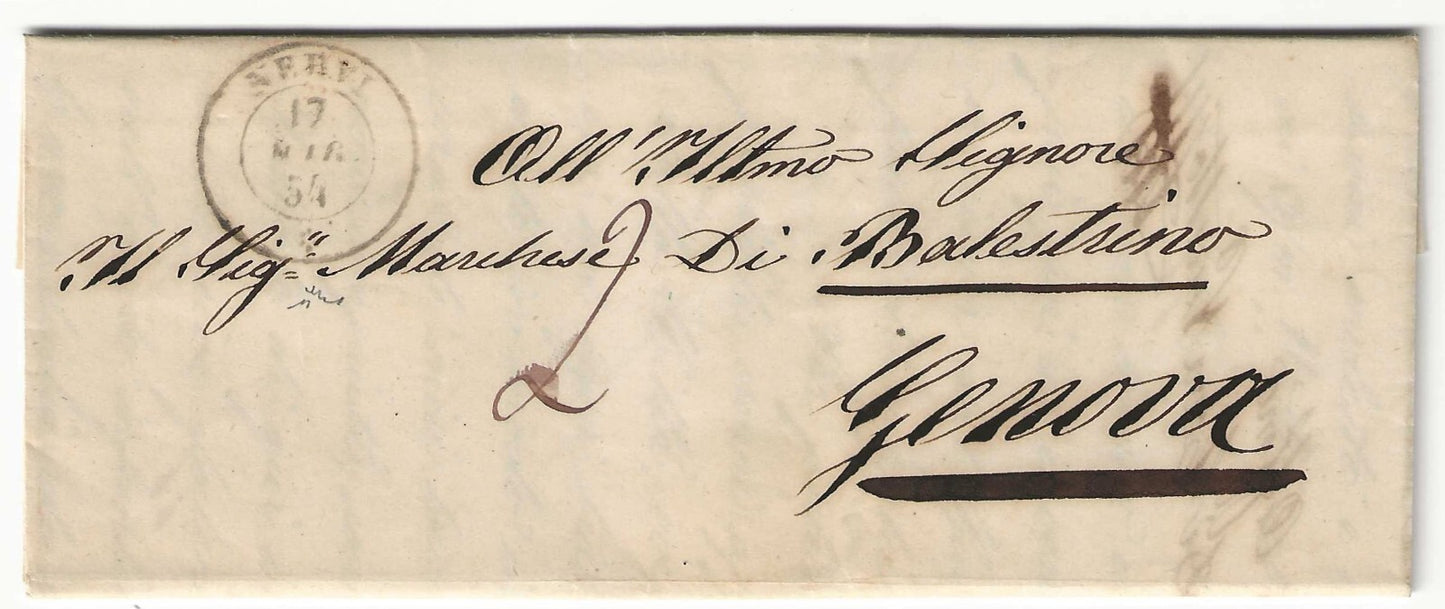 NERVI
17
MAR
54
All' Illmo Signore
Il Sig.r Marchese Di Balestrino
2
Genova